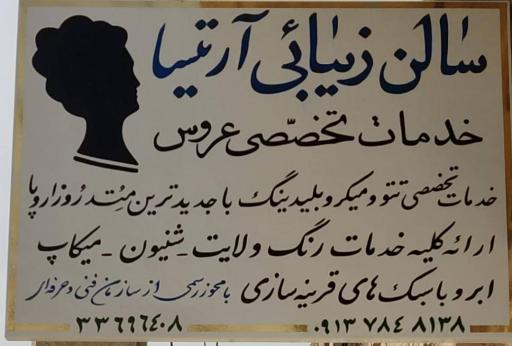 سالن زیبائی آرتیسا
خدمات تخصّصی عروس
خدمات تخصصی تتو و میکروبلیدینگ با جدیدترین مِتُد رُوز اروپا
ارائه کلیه خدمات رنگ و لایت - شنیون - میکاپ
ابرو با سبک های قرینه سازی با مجوز رسمی از سازمان فنی و حرفه ای
۰۹۱۳ ۷۸۴ ۸۱۳۸ ۳۳۶۹۶۴۰۸